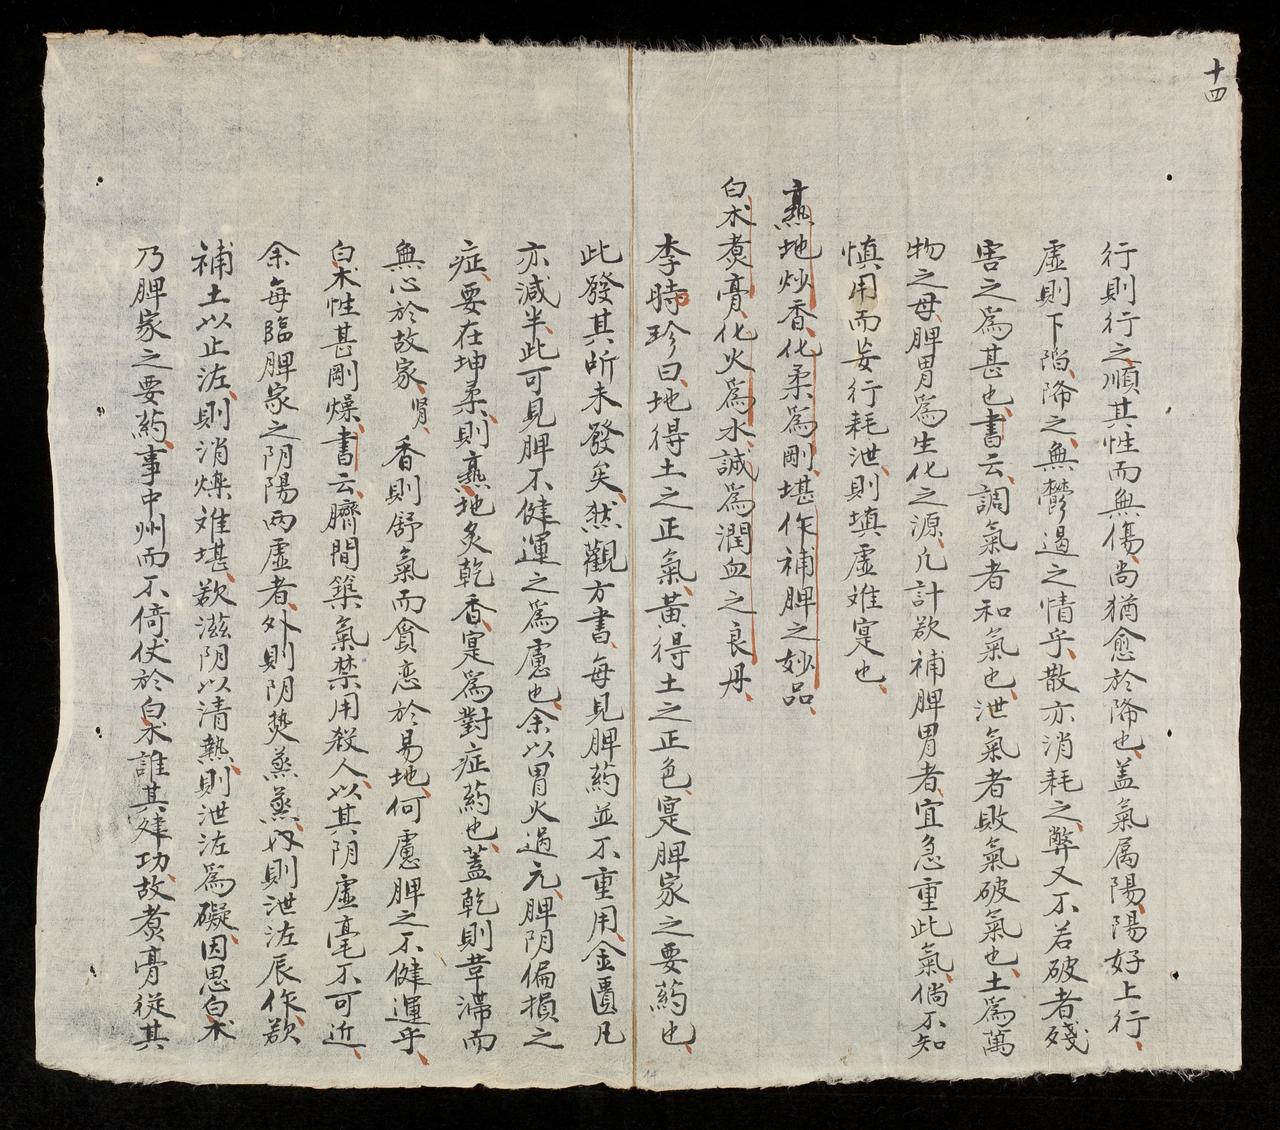 十四
行則行之順其性而無傷尚猶愈於降也盖氣属陽陽好上行
虚則下陷降之無鬱遏之情乎散亦消耗之弊又不若破者殘
害之為甚也書云調氣者和氣也泄氣者敗氣破氣也土為萬
物之母脾胃為生化之源凡計欲補脾胃者宜急重此氣倘不知
慎用而妄行耗泄則填虚难寔也
熟地炒香化柔為剛堪作補脾之妙品
白朮煮膏化火為水誠為潤血之良丹
李時珍曰地得土之正氣黄得土之正色寔脾家之要葯也
此發其所未發矣然觀方書每見脾葯並不重用金匱凡
亦減半此可見脾不健運之為慮也余以胃火過亢脾阴偏損之
症要在坤柔則熟地炙乾香寔為對症葯也蓋乾則葷滞而
無心於故家腎香則舒氣而貪恋於易地何慮脾之不健運乎
白朮性甚剛燥書云臍間築氣禁用殺人以其阴虚毫不可近
余每臨脾家之阴陽两虚者外則阴𤍠蒸蒸内則泄泻辰作欲
補土以止泻則消爍难堪欲滋阴以清熱則泄泻為礙因思白朮
乃脾家之要葯事中州而不倚仗於白朮誰其建功故煮膏從其